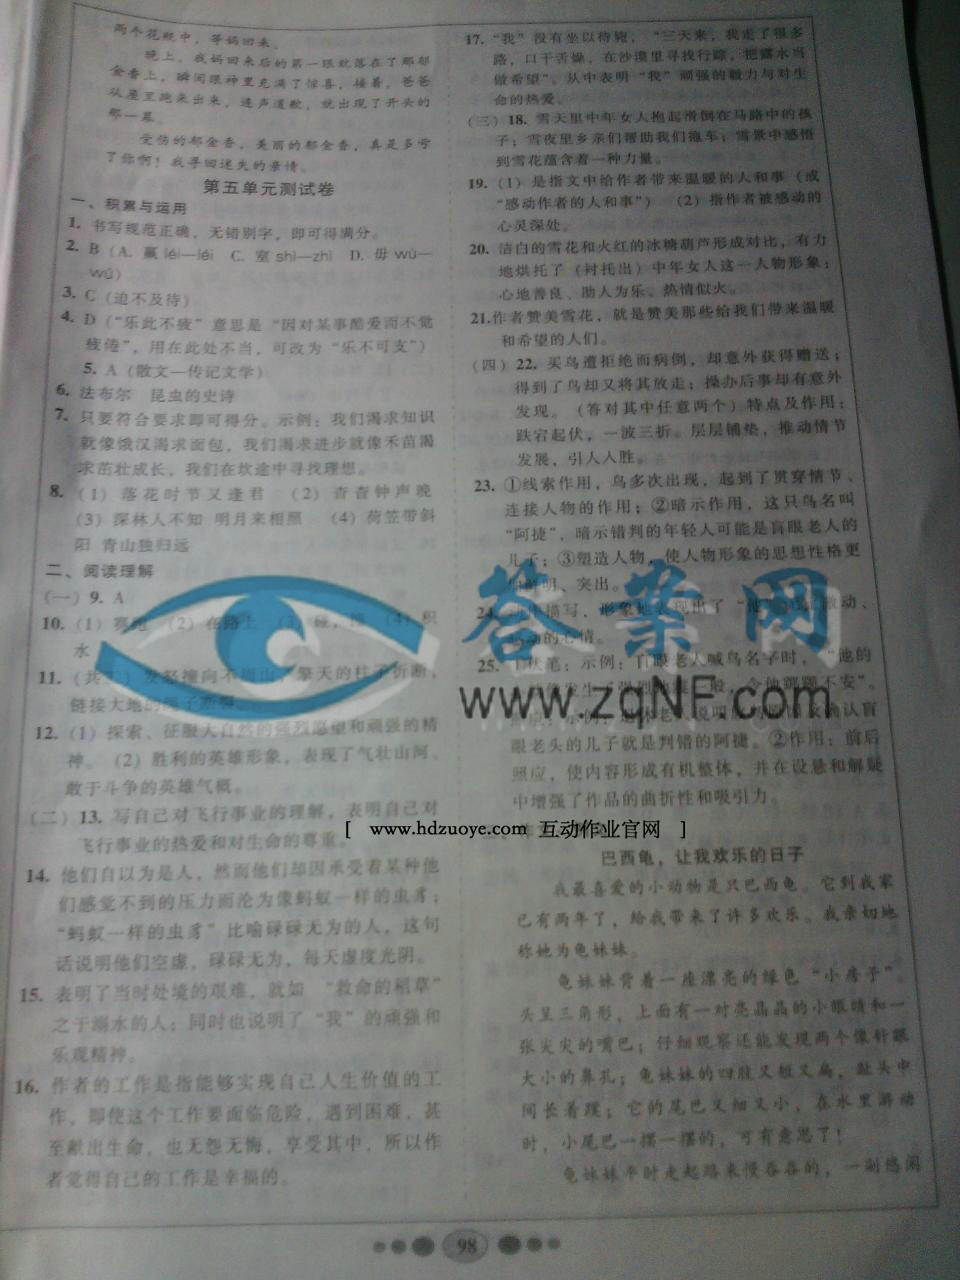 两个花瓶中，等妈回来。
晚上，我妈回来后的第一眼就落在了那郁
金香上，瞬间眼神里充满了惊喜，接着，爸爸
从屋里跑来出来，连声道歉，就出现了开头的
那一幕。
受伤的郁金香，美丽的郁金香，真是多亏
了你啊！我寻回迷失的亲情。
第五单元测试卷
一、积累与运用
1. 书写规范正确，无错别字，即可得满分。
2. B（A. 羸léi—léi　C. 室shì—zhì　D. 毋wù—
wú）
3. C（迫不及待）
4. D（“乐此不疲”意思是“因对某事酷爱而不觉
疲倦”，用在此处不当，可改为“乐不可支”）
5. A（散文—传记文学）
6. 法布尔　昆虫的史诗
7. 只要符合要求即可得分。示例：我们渴求知识
就像饿汉渴求面包，我们渴求进步就像禾苗渴
求茁壮成长，我们在坎途中寻找理想。
8. （1）落花时节又逢君　（2）杳杳钟声晚
（3）深林人不知　明月来相照　（4）荷笠带斜
阳　青山独归远
二、阅读理解
（一）9. A
10. （1）　（2）在路上　（3）　（4）积
水
11. （共工）发怒撞向不周山，擎天的柱子折断，
链接大地的绳子断裂。
12. （1）探索、征服大自然的强烈愿望和顽强的精
神。（2）胜利的英雄形象，表现了气壮山河、
敢于斗争的英雄气概。
（二）13. 写自己对飞行事业的理解，表明自己对
飞行事业的热爱和对生命的尊重。
14. 他们自以为是人，然而他们却因承受着某种他
们感觉不到的压力而沦为像蚂蚁一样的虫豸；
“蚂蚁一样的虫豸”比喻碌碌无为的人，这句
话说明他们空虚，碌碌无为，每天虚度光阴。
15. 表明了当时处境的艰难，就如“救命的稻草”
之于溺水的人；同时也说明了“我”的顽强和
乐观精神。
16. 作者的工作是指能够实现自己人生价值的工
作，即使这个工作要面临危险，遇到困难，甚
至献出生命，也无怨无悔，享受其中，所以作
者觉得自己的工作是幸福的。
17. “我”没有坐以待毙，“三天来，我走了很多
路，口干舌燥，在沙漠里寻找行踪，把露水当
做希望”。从中表明“我”顽强的毅力与对生
命的热爱。
（三）18. 雪天里中年女人抱起滑倒在马路中的孩
子；雪夜里乡亲们帮助我们拖车；雪景中感悟
到雪花蕴含着一种力量。
19. （1）是指文中给作者带来温暖的人和事（或
“感动作者的人和事”）（2）指作者被感动的
心灵深处。
20. 洁白的雪花和火红的冰糖葫芦形成对比，有力
地烘托了（衬托出）中年女人这一人物形象：
心地善良、助人为乐、热情似火。
21.作者赞美雪花，就是赞美那些给我们带来温暖
和希望的人们。
（四）22. 买鸟遭拒绝而病倒，却意外获得赠送；
得到了鸟却又将其放走；操办后事却有意外
发现。（答对其中任意两个）特点及作用：
跌宕起伏，一波三折。层层铺垫，推动情节
发展，引人入胜。
23. ①线索作用，鸟多次出现，起到了贯穿情节、
连接人物的作用；②暗示作用，这只鸟名叫
“阿捷”，暗示错判的年轻人可能是盲眼老人的
儿子；③塑造人物，使人物形象的思想性格更
加鲜明、突出。
24. 动作描写，形象地表现出了“他”激动、
的心情。
25. ①伏笔：示例：盲眼老人喊鸟名子时，“他的
发生了强烈地震一般，令他踉踉不安”。
示例：退休老人说明放鸟原因及确认盲
眼老头的儿子就是判错的阿捷。②作用：前后
照应，使内容形成有机整体，并在设悬和解疑
中增强了作品的曲折性和吸引力。
巴西龟，让我欢乐的日子
我最喜爱的小动物是只巴西龟。它到我家
已有两年了，给我带来了许多欢乐。我亲切地
称她为龟妹妹。
龟妹妹背着一座漂亮的绿色“小房子”。
头呈三角形，上面有一对亮晶晶的小眼睛和一
张尖尖的嘴巴；仔细观察还能发现两个像针眼
大小的鼻孔；龟妹妹的四肢又短又扁，趾头中
间长着蹼；它的尾巴又细又小，在水里游动
时，小尾巴一摆一摆的，可有意思了！
龟妹妹平时走起路来慢吞吞的，一副悠闲
98
答案网
www.zqNF.com
[ www.hdzuoye.com 互动作业官网 ]